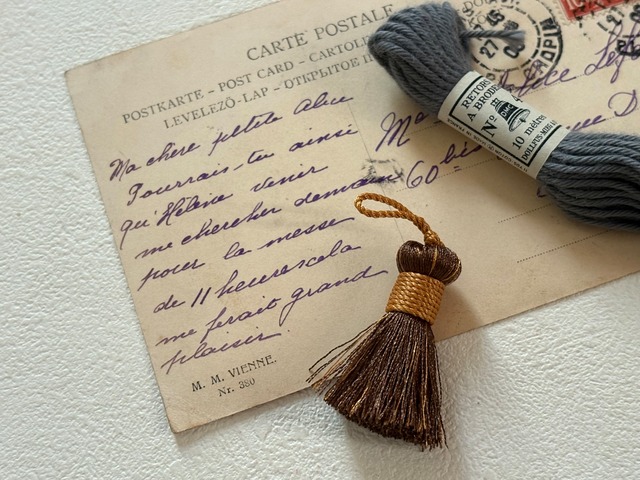 CARTE POSTALE
POSTKARTE – POST CARD – CARTOLINA
LEVELEZŐ-LAP – ОТКРЫТОЕ
Ma chère petite Alice
Pourrais-tu ainsi
qu'Hélène venir
me chercher demain
pour la messe
de 11 heures cela
me ferait grand
plaisir.
M. M. VIENNE.
Nr. 380
60 bis
RETORS
A BRODER
Nº
10 mètres
27